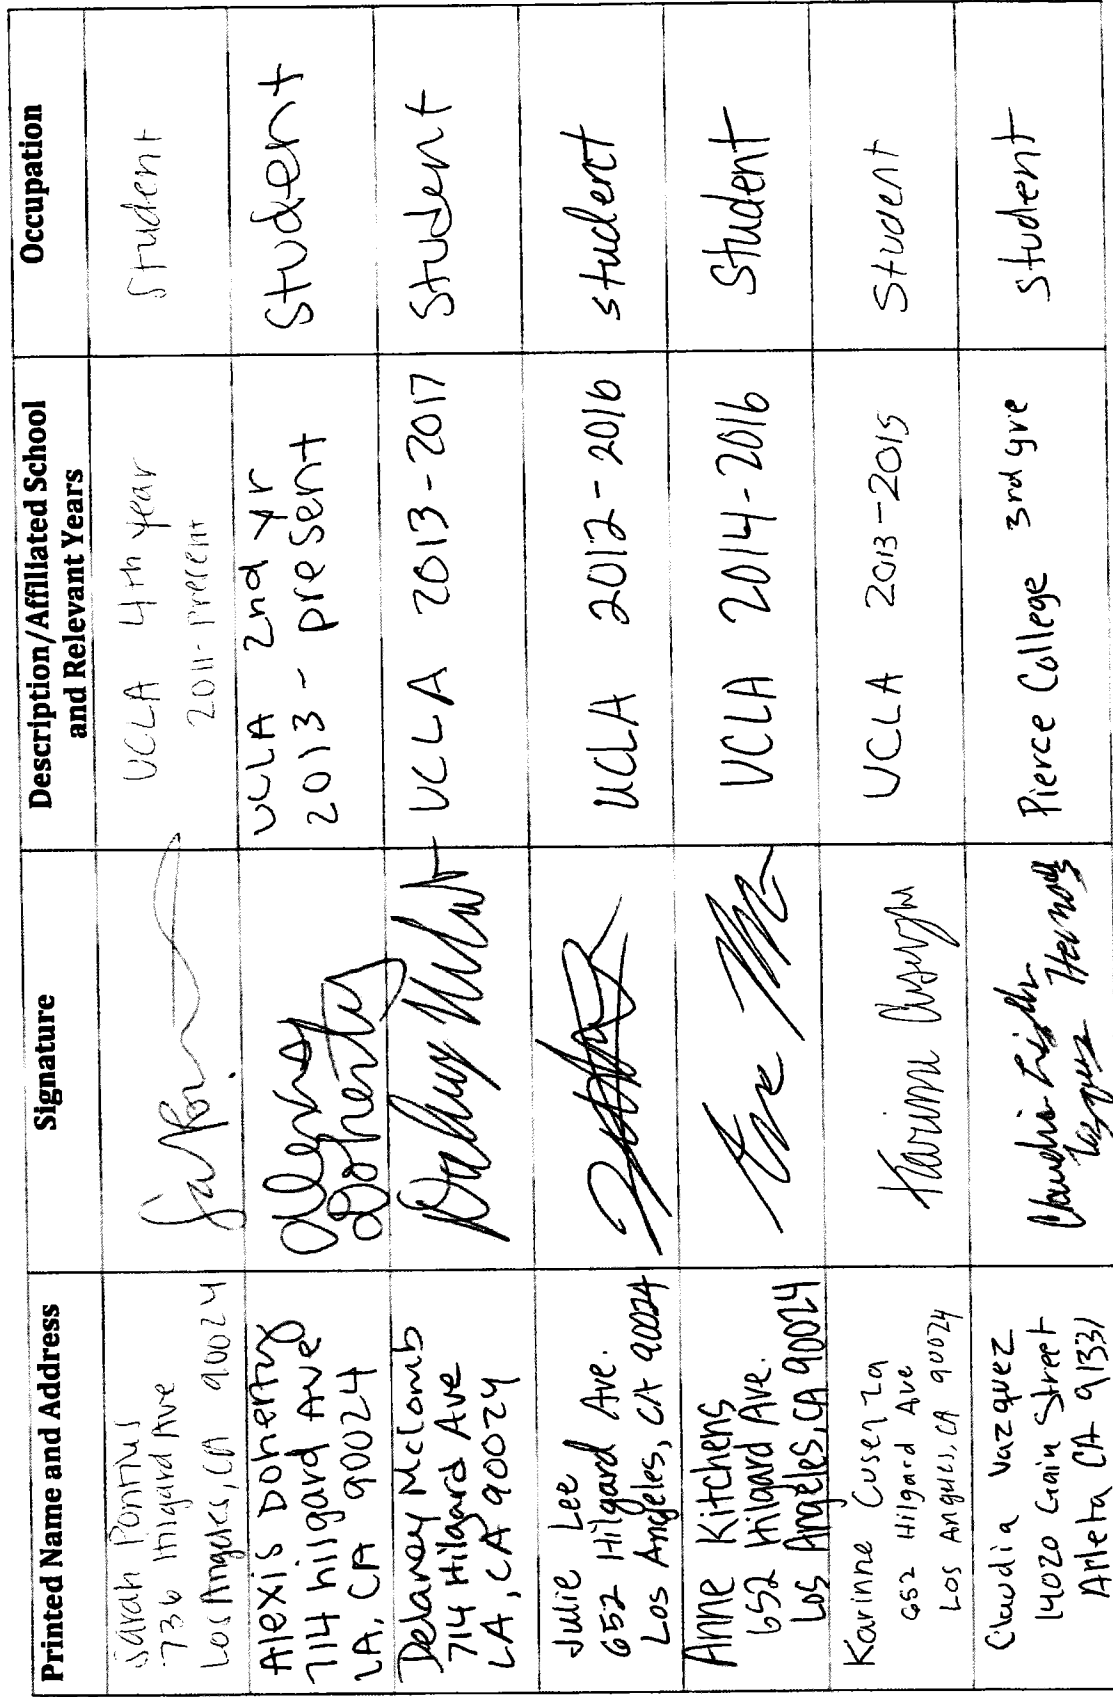 Printed Name and Address
Signature
Description/Affiliated School
and Relevant Years
Occupation
Sarah
736 Hilgard Ave
Los Angeles, CA 90024
UCLA 4th year
2011-Present
Student
Alexis Doherty
714 hilgard Ave
LA, CA 90024
Alexis
Doherty
UCLA 2nd yr
2013 - present
Student
Delaney McComb
714 Hilgard Ave
LA, CA 90024
UCLA 2013-2017
Student
Julie Lee
652 Hilgard Ave.
Los Angeles, CA 90024
UCLA 2012-2016
student
Anne Kitchens
652 Hilgard Ave.
Los Angeles, CA 90024
UCLA 2014-2016
Student
Karinne Cusenza
652 Hilgard Ave
Los Angeles, CA 90024
UCLA 2013-2015
Student
Claudia Vazquez
14020 Street
Arleta CA 91331
Claudia
Pierce College 3rd
student